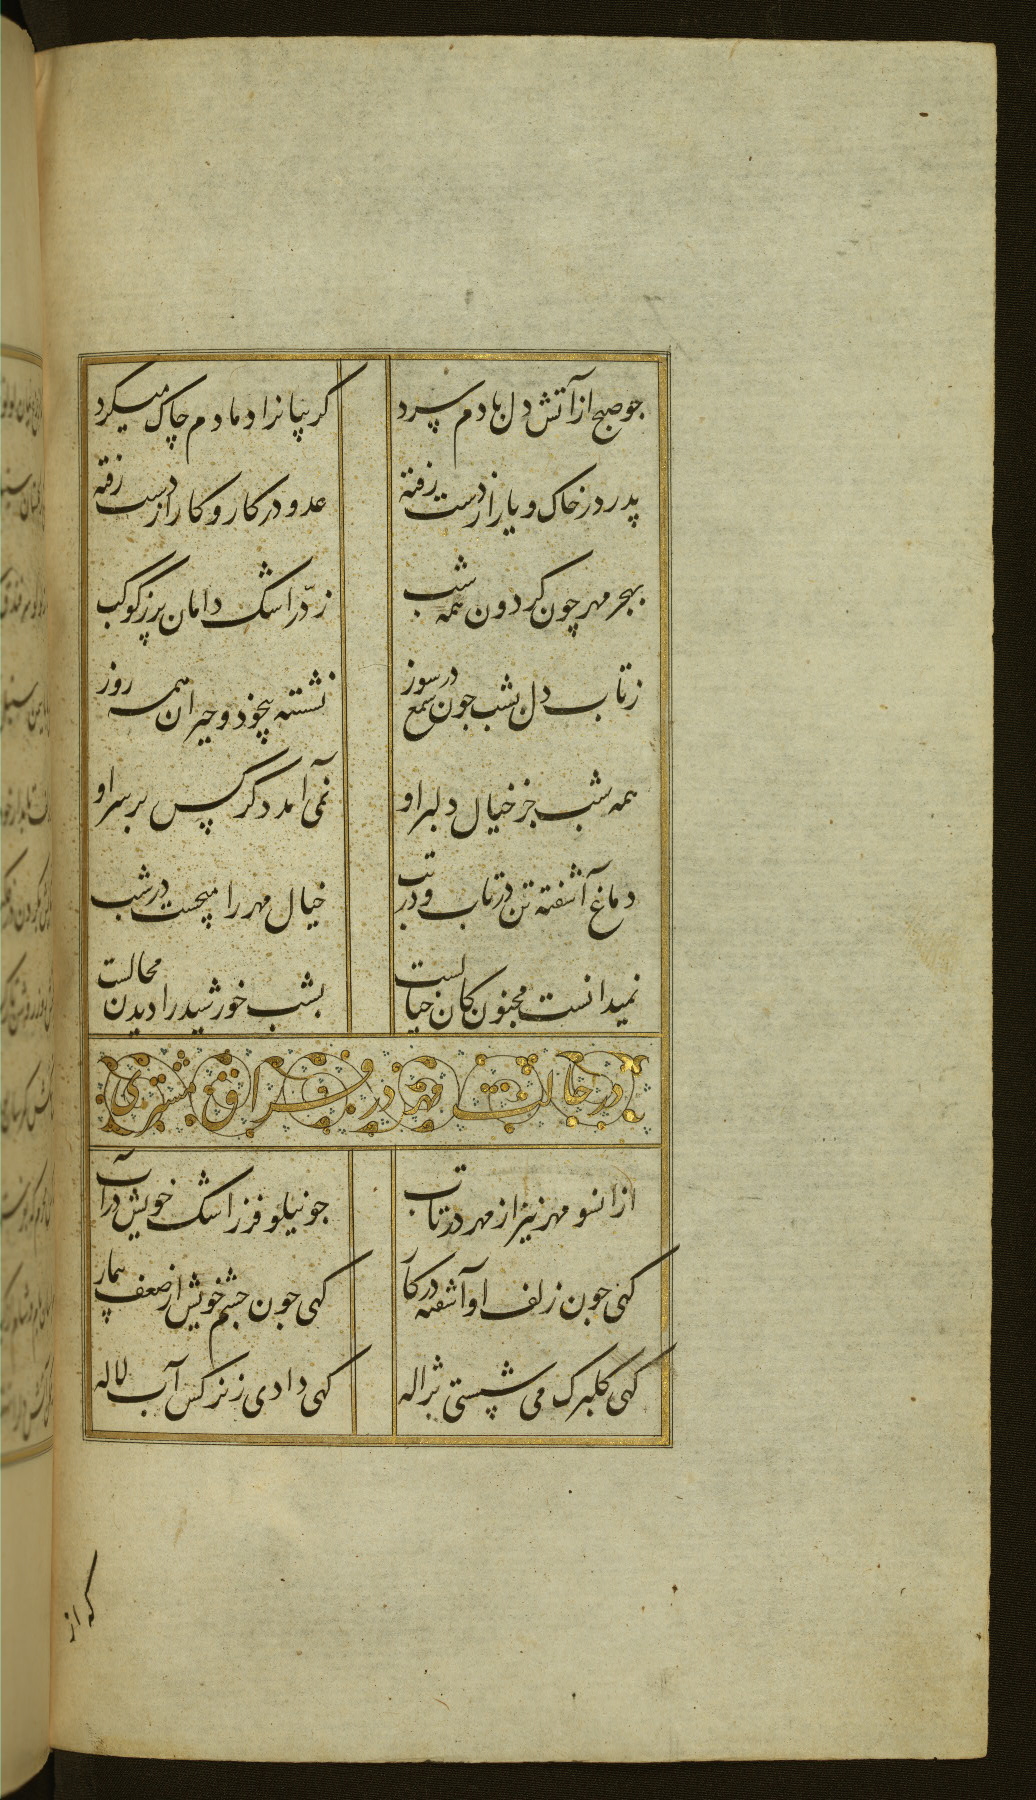 چو صبح از آتش دل با دم سرد گریبانرا دمادم چاک میکرد
پدر در خاک و یار از دست رفته عدو در کار و کار از دست رفته
بهجر مهر چون کردون همه شب ز در اشک دامان پر ز کوکب
ز تاب دل بشب چون شمع در سوز نشسته بیخود و حیران همه روز
همه شب جز خیال دلبر او نمی آمد دگر کس بر سر او
دماغ آشفته تن در تاب و در تب خیال مهر را میجست در شب
نمیدانست مجنون کان خیالست بشب خورشید را دیدن محالست
در حالت مهر در فراق مشتری
از انسو مهر نیز از مهر در تاب چو نیلوفر ز اشک خویش در آب
کهی چون زلف او آشفته در کار کهی چون چشم خویش از ضعف بیمار
کهی کلبرک می شستی بژاله کهی دادی ز نرکس آب لاله
که از